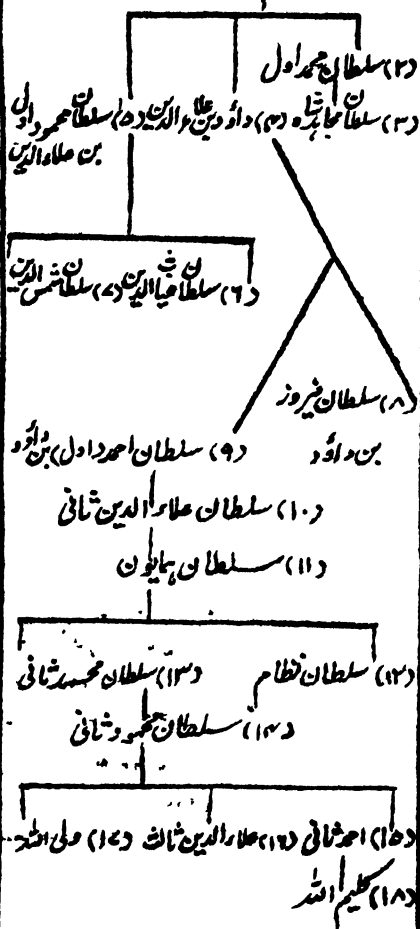 (۲) سلطان محمد اول
(۳) سلطان مجاہد شاہ (۴) داؤد بن علاء الدین (۵) سلطان محمود اول
بن علاء الدین
(۶) سلطان غیاث الدین (۷) سلطان شمس الدین
(۸) سلطان فیروز
بن داؤد
(۹) سلطان احمد (اول) بن داؤد
(۱۰) سلطان علاء الدین ثانی
(۱۱) سلطان ہمایون
(۱۲) سلطان نظام
(۱۳) سلطان محمد ثانی
(۱۴) سلطان محمود ثانی
(۱۵) احمد ثانی (۱۶) علاء الدین ثالث (۱۷) ولی اللہ
(۱۸) کلیم اللہ